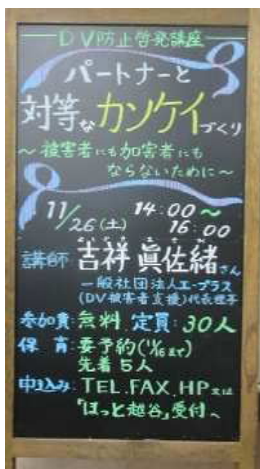 DV防止啓発講座
パートナーと
対等なカンケイづくり
～被害者にも加害者にも
ならないために～
11/26(土) 14:00～
16:00
講師 吉祥 眞佐緒さん
一般社団法人エープラス
(DV被害者支援)代表理事
参加費:無料 定員:30人
保育:要予約(11/16まで)
先着5人
申込み:TEL.FAX.HP又は
「ほっと越谷」受付へ